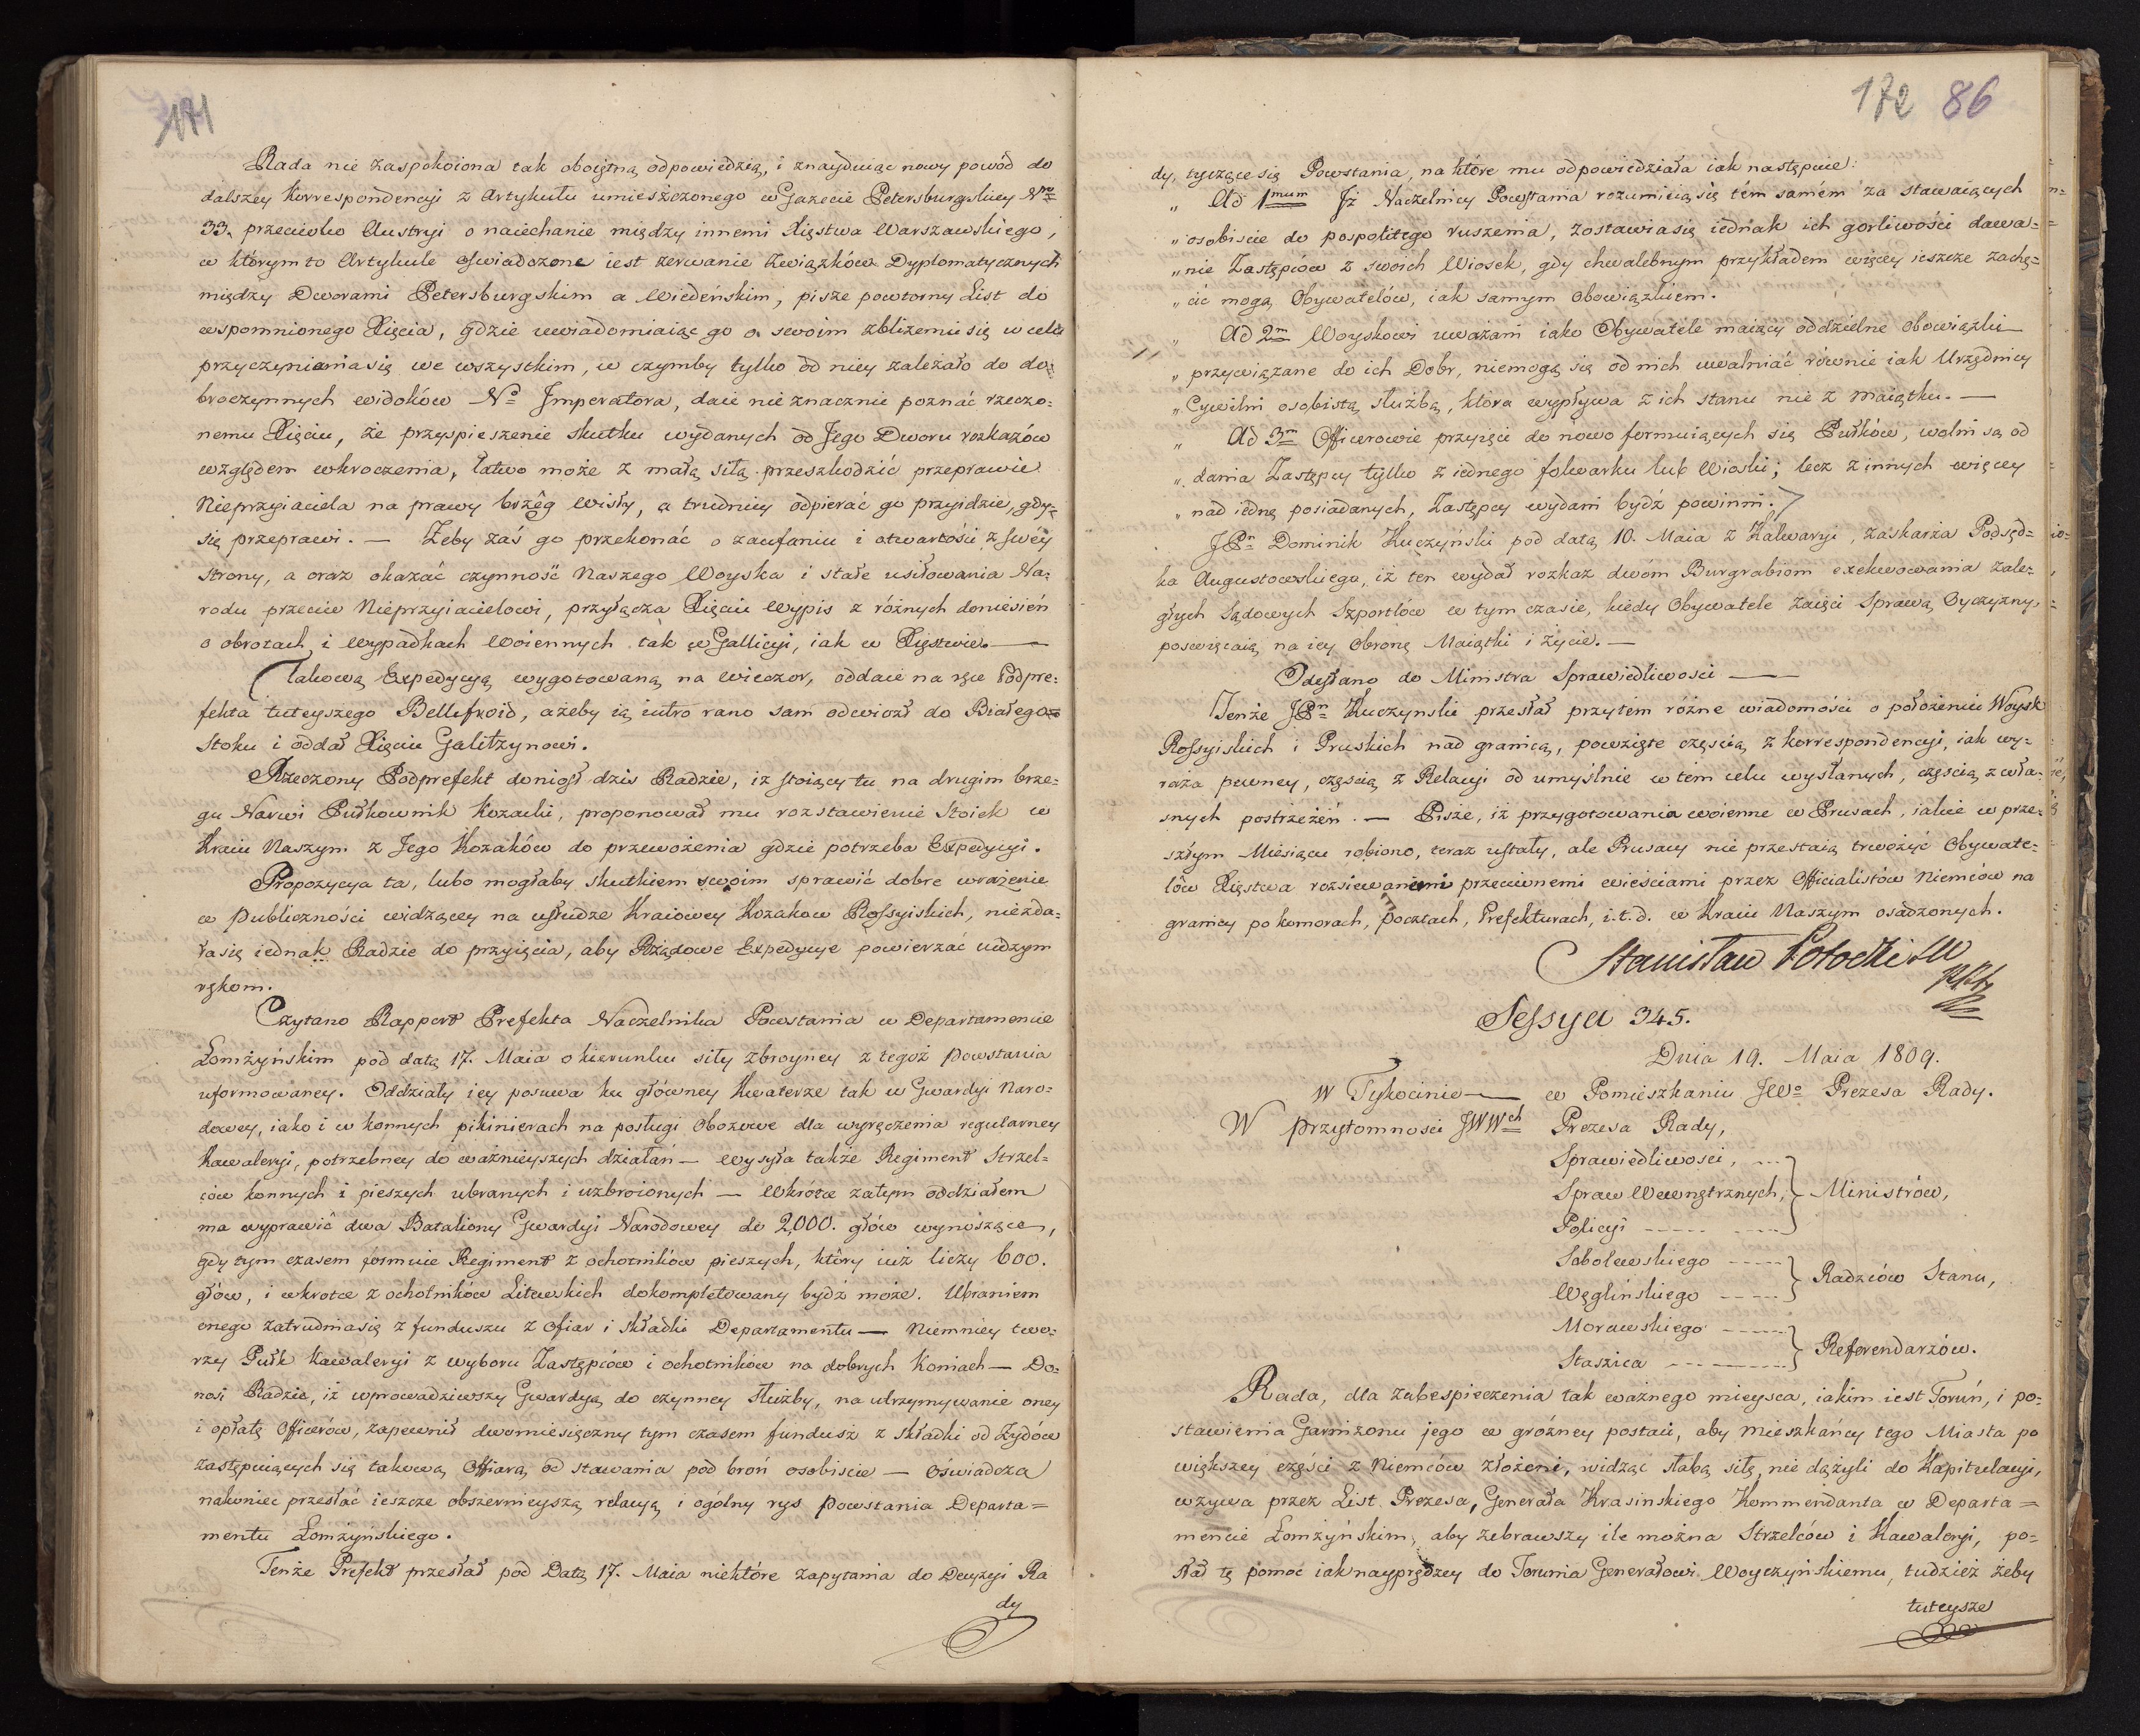 171
Rada nie zaspokoiona tak oboiętną odpowiedzią, i znayduiąc nowy powód do
dalszey korrespondencyi z Artykułu umieszczonego w Gazecie Petersburgskiey Nro
33. przeciwko Austryi o naiechanie między innemi Xięstwa Warszawskiego,
w którym to Artykule oświadczone iest zerwanie Związków Dyplomatycznych
między Dworami Petersburgskim a Wiedeńskim, pisze powtorny List do
wspomnionego Xięcia, gdzie uwiadomiaiąc go o swoim zbliżeniu się w celu
przyczyniania się we wszystkim, w czymby tylko od niey zależało do do=
broczynnych widoków No Jmperatora, daie nieznacznie poznać rzeczo=
nemu Xięciu, że przyspieszenie skutku wydanych od Jego Dworu rozkazów
względem wkroczenia, łatwo może z małą siłą przeszkodzić przeprawie
Nieprzyiaciela na prawy brzeg Wisły, a trudniey odpierać go przyidzie, gdy
się przeprawi. — Żeby zaś go przekonać o zaufaniu i otwartości z swey
strony, a oraz okazać czynność Naszego Woyska i stałe usiłowania Na=
rodu przeciw Nieprzyiacielowi, przyłącza Xięciu Wypis z różnych doniesień
o obrotach i wypadkach woiennych tak w Gallicyi, iak w Xięstwie. —
Takową Expedycyą wygotowaną na wieczor, oddaie na ręce Podpre=
fekta tuteyszego Bellefroid, ażeby ią iutro rano sam odwiozł do Białego=
stoku i oddał Xięciu Galitzynowi.
Rzeczony Podprefekt doniosł dziś Radzie, iż stoiący tu na drugim brze=
gu Narwi Pułkownik Kozacki, proponował mu rozstawienie Stoiek w
Kraiu Naszym z Jego Kozaków do przewożenia gdzie potrzeba Expedycyi.
Propozycya ta, lubo mogłaby skutkiem swoim sprawić dobre wrażenie
w Publiczności widzącey na usłudze Kraiowey Kozakow Rossyiskich, niezda=
ła się iednak Radzie do przyięcia, aby Rządowe Expedycye powierzać cudzym
rękom.
Czytano Rapport Prefekta Naczelnika Powstania w Departamencie
Łomżyńskim pod datą 17. Maia o kierunku siły zbroyney z tegoż Powstania
uformowaney. Oddziały iey posuwa ku główney Kwaterze tak w Gwardyi Naro=
dowey, iako i w konnych pikinierach na posługi Obozowe dla wyręczenia regularney
Kawaleryi, potrzebney do ważnieyszych działań — Wysyła także Regiment Strzel=
ców konnych i pieszych ubranych i uzbroionych — Wkrótce zatym oddziałem
ma wyprawić dwa Bataliony Gwardyi Narodowey do 2,000. głów wynoszące,
gdy tym czasem formuie Regiment z ochotników pieszych, który iuż liczy 600.
głów, i wkrotce z ochotników Litewskich dokompletowany bydź może. Ubraniem
onego zatrudnia się z funduszu z Ofiar i Składki Departamentu — Niemniey two=
rzy Pułk Kawaleryi z wyboru Zastępców i ochotników na dobrych Koniach — Do=
nosi Radzie, iż wprowadziwszy Gwardyą do czynney Służby, na utrzymywanie oney
i opłatę Officerów, zapewnił dwomiesięczny tym czasem fundusz z składki od Żydów
zastępuiących się takową Offiarą od stawania pod broń osobiście — Oświadcza
nakoniec przesłać ieszcze obszernieyszą relacyą i ogólny rys Powstania Departa=
mentu Łomżyńskiego.
Tenże Prefekt przesłał pod Datą 17. Maia niektóre zapytania do Decyzyi Ra
dy
172 86
dy, tyczące się Powstania, na które mu odpowiedziała iak następuie:
„ Ad 1mum Jż Naczelnicy Powstania rozumieią się tém samém za stawaiących
„ osobiscie do pospolitego ruszenia, zostawia się iednak ich gorliwości dawa=
„ nie Zastępców z swoich Wiosek, gdy chwalebnym przykładem więcey ieszcze zachę=
„ cić mogą Obywatelów, iak samym Obowiązkiem.
„ Ad 2m Woyskowi uważani iako Obywatele maiący oddzielne obowiązki
„ przywiązane do ich Dobr, niemogą się od nich uwalniać równie iak Urzędnicy
„ Cywilni osobistą służbą, która wypływa z ich stanu nie z Maiątku. —
„ Ad 3m Officerowie przyięci do nowo formuiących się Pułków, wolni są od
„ dania Zastępcy tylko z iednego folwarku lub Wioski; lecz z innych więcey
„ nad iednę posiadanych, Zastępcy wydani bydź powinni.
JPn Dominik Kuczyński pod datą 10. Maia z Kalwaryi, zaskarża Podsęd=
ka Augustowskiego, iż ten wydał rozkaz dwóm Burgrabiom exekwowania zale=
głych Sądowych Szportlów w tym czasie, kiedy Obywatele zaięci Sprawą Oyczyzny
poswięcaią na iey Obronę Maiątki i życie. —
Odesłano do Ministra Sprawiedliwości —
Tenże JPn Kuczynski przesłał przytém różne wiadomości o położeniu Woysk
Rossyiskich i Pruskich nad granicą, powzięte częscią z korrespondencyi, iak wy=
raża pewney, częscią z Relacyi od umyślnie w tém celu wysłanych, częscią z wła=
snych postrzeżeń. — Pisze, iż przygotowania woienne w Prusach, iakie w prze=
szłym Miesiącu robiono, teraz ustały, ale Prusacy nie przestaią trwożyć Obywate=
lów Xięstwa rozsiewaniem przeciwnemi wieściami przez Officialistów Niemców na
granicy po komorach, Pocztach, Prefekturach, i.t.d. w Kraiu Naszym osadzonych.
Stanisław Potocki
Sessya 345.
Dnia 19. Maia 1809.
W Tykocinie — w Pomieszkaniu JWo Prezesa Rady.
W Przytomności JWWch Prezesa Rady,
Sprawiedliwosci,
Spraw Wewnętrznych, Ministrów,
Policyi
Sobolewskiego
Węglińskiego Radzców Stanu,
Morawskiego
Staszica Referendarzów.
Rada, dla zabespieczenia tak ważnego mieysca, iakim iest Toruń, i po=
stawienia Garnizonu jego w gróźney postaci, aby Mieszkańcy tego Miasta po
większey części z Niemców złożeni, widząc słabą siłę, nie dążyli do Kapitulacyi,
wzywa przez List Prezesa, Generała Krasinskiego Kommendanta w Departa=
mencie Łomżyńskim, aby zebrawszy ile można Strzelców i Kawaleryi, po=
słał tę pomoc iaknayprędzey do Torunia Generałowi Woyczyńskiemu, tudzież żeby
tuteysze